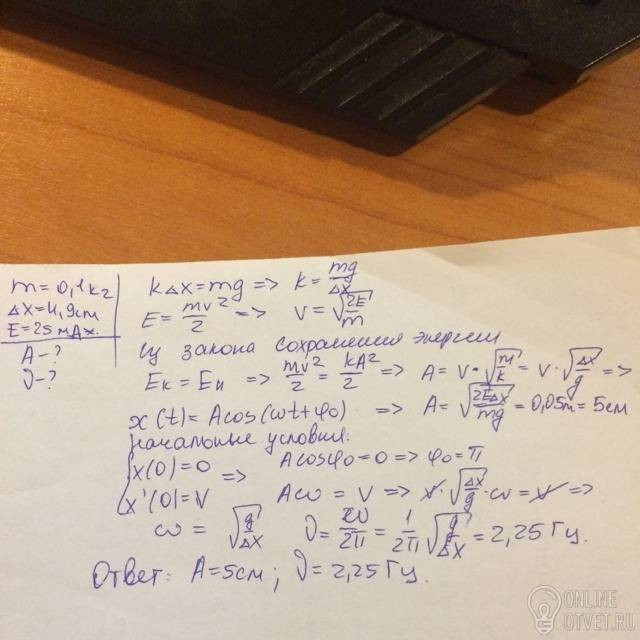 m = 0,1кг
Δx = 4,9см
E = 25 мДж.
A - ?
ν - ?
kΔx = mg => k = mg/Δx
E = mv²/2 => v = √(2E/m)
Из закона сохранения энергии
Eк = Eп => mv²/2 = kA²/2 => A = v·√(m/k) = v·√(Δx/g) =>
x(t) = Acos(ωt+φ₀) => A = √(2EΔx/mg) = 0,05m = 5см
начальные условия:
{x(0) = 0 => Acosφ₀ = 0 => φ₀ = π
x'(0) = v Aω = v => v·√(Δx/g)·ω = v =>
ω = √(g/Δx) ν = ω/2π = 1/2π √(g/Δx) = 2,25 Гц.
Ответ: A = 5см; ν = 2,25 Гц.
ONLINE
OTVET.RU